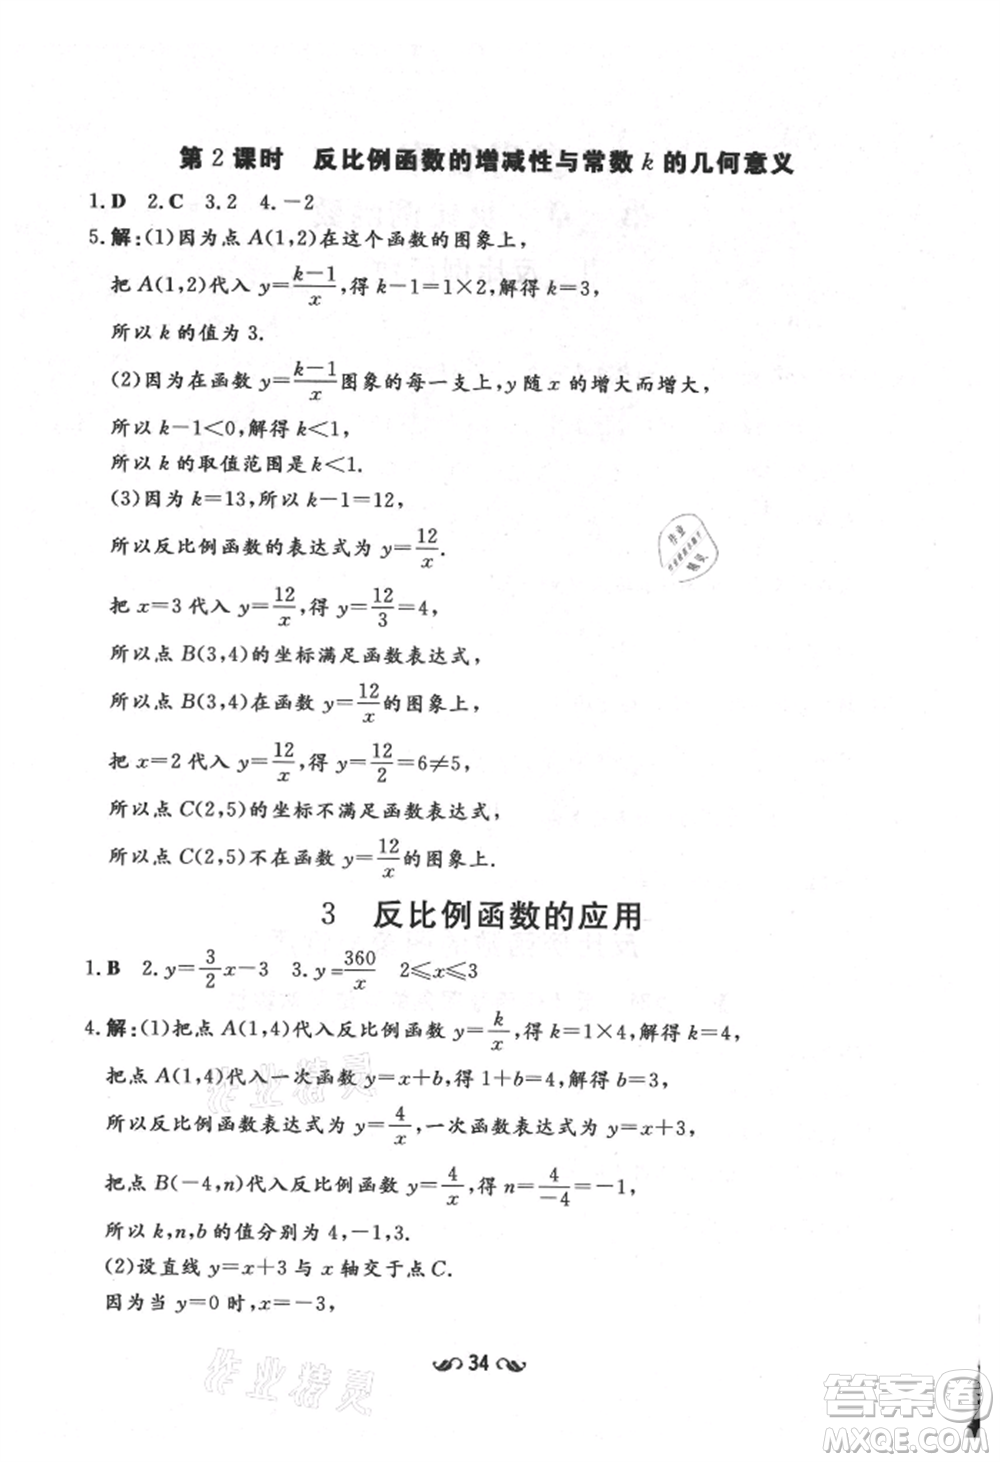 第 2 课时　反比例函数的增减性与常数 k 的几何意义
1. D　2. C　3. 2　4. －2
5. 解:(1)因为点 A(1,2)在这个函数的图象上,
把 A(1,2)代入 y=\frac{k-1}{x},得 k-1=1×2,解得 k=3,
所以 k 的值为 3.
(2)因为在函数 y=\frac{k-1}{x}图象的每一支上,y 随 x 的增大而增大,
所以 k-1<0,解得 k<1,
所以 k 的取值范围是 k<1.
(3)因为 k=13,所以 k-1=12,
所以反比例函数的表达式为 y=\frac{12}{x}.
把 x=3 代入 y=\frac{12}{x},得 y=\frac{12}{3}=4,
所以点 B(3,4)的坐标满足函数表达式,
所以点 B(3,4)在函数 y=\frac{12}{x}的图象上,
把 x=2 代入 y=\frac{12}{x},得 y=\frac{12}{2}=6≠5,
所以点 C(2,5)的坐标不满足函数表达式,
所以点 C(2,5)不在函数 y=\frac{12}{x}的图象上.
3　反比例函数的应用
1. B　2. y=\frac{3}{2}x-3　3. y=\frac{360}{x}　2≤x≤3
4. 解:(1)把点 A(1,4)代入反比例函数 y=\frac{k}{x},得 k=1×4,解得 k=4,
把点 A(1,4)代入一次函数 y=x+b,得 1+b=4,解得 b=3,
所以反比例函数表达式为 y=\frac{4}{x},一次函数表达式为 y=x+3,
把点 B(-4,n)代入反比例函数 y=\frac{4}{x},得 n=\frac{4}{-4}=-1,
所以 k,n,b 的值分别为 4,-1,3.
(2)设直线 y=x+3 与 x 轴交于点 C.
因为当 y=0 时,x=-3,
34
作业精灵
作业精灵
答案圈
MXQE.COM